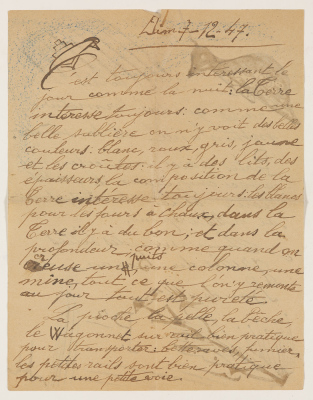 Dim-7-12-47.
C'est toujours interessant le
jour comme la nuit: la Terre
interesse toujours: comme une
belle sablière on n'y voit des belles
couleurs. blanc, roux, gris, jaune
et les croûtes: il y à des lits, des
épaisseurs, la composition de la
Terre interesse toujours: les blancs
pour les fours à chaux, dans la
Terre il y à du bon; et dans la
profondeur, comme quand on
creuse un puits, une colonne, une
mine, tout ce que l'on y remonte
au jour
La pioche, la pelle, la bêche,
le Wagonnet sur rail bien pratique
pour transporter: betteraves, fumier.
les petites rails sont bien pratique
pour une petite voie.